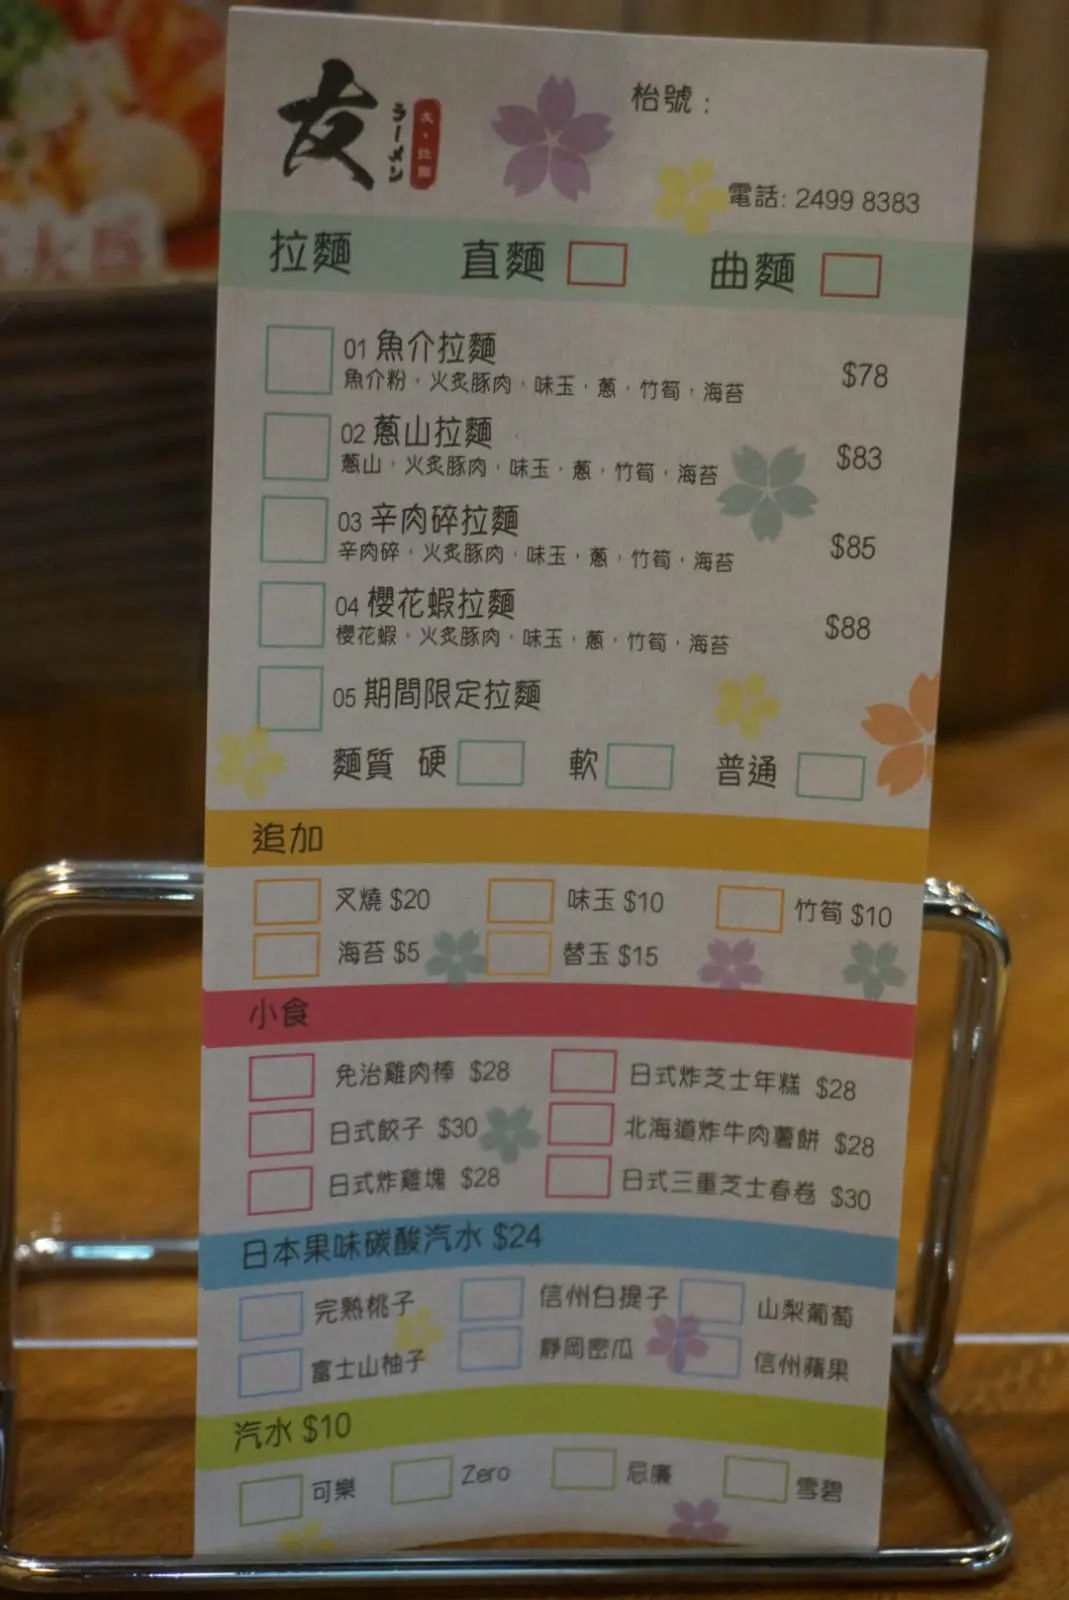 友
ラーメン
友・拉麵
枱號：
電話: 2499 8383
拉麵 直麵 曲麵
01 魚介拉麵
魚介粉，火炙豚肉，味玉，蔥，竹筍，海苔 $78
02 蔥山拉麵
蔥山，火炙豚肉，味玉，蔥，竹筍，海苔 $83
03 辛肉碎拉麵
辛肉碎，火炙豚肉，味玉，蔥，竹筍，海苔 $85
04 櫻花蝦拉麵
櫻花蝦，火炙豚肉，味玉，蔥，竹筍，海苔 $88
05 期間限定拉麵
麵質 硬 軟 普通
追加
叉燒 $20 味玉 $10 竹筍 $10
海苔 $5 替玉 $15
小食
免治雞肉棒 $28 日式炸芝士年糕 $28
日式餃子 $30 北海道炸牛肉薯餅 $28
日式炸雞塊 $28 日式三重芝士春卷 $30
日本果味碳酸汽水 $24
完熟桃子 信州白提子 山梨葡萄
富士山柚子 靜岡密瓜 信州蘋果
汽水 $10
可樂 Zero 忌廉 雪碧